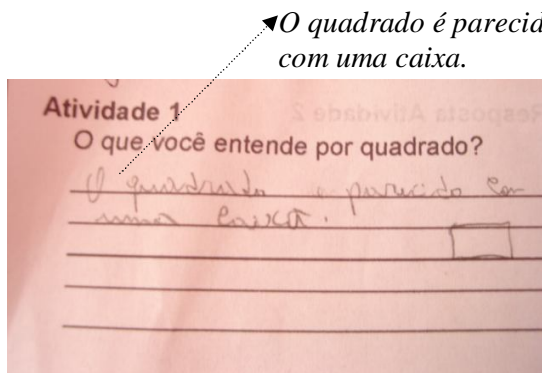 O quadrado é parecid
com uma caixa.
Atividade 1
Resposta Atividade 2
O que você entende por quadrado?
O quadrado e parecido com
uma caixa.